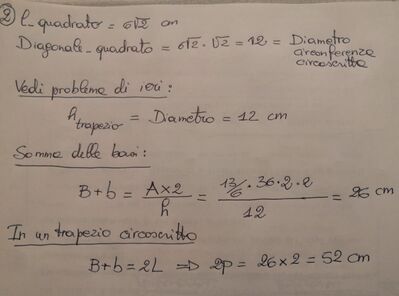 ② l_quadrato = 6√2 cm
Diagonale_quadrato = 6√2 · √2 = 12 = Diametro circonferenza circoscritta
Vedi problema di ieri:
h trapezio = Diametro = 12 cm
Somma delle basi:
B+b = A×2 / h = 13/6 · 36 · 2 · 2 / 12 = 26 cm
In un trapezio circoscritto
B+b = 2L ⇒ 2p = 26×2 = 52 cm